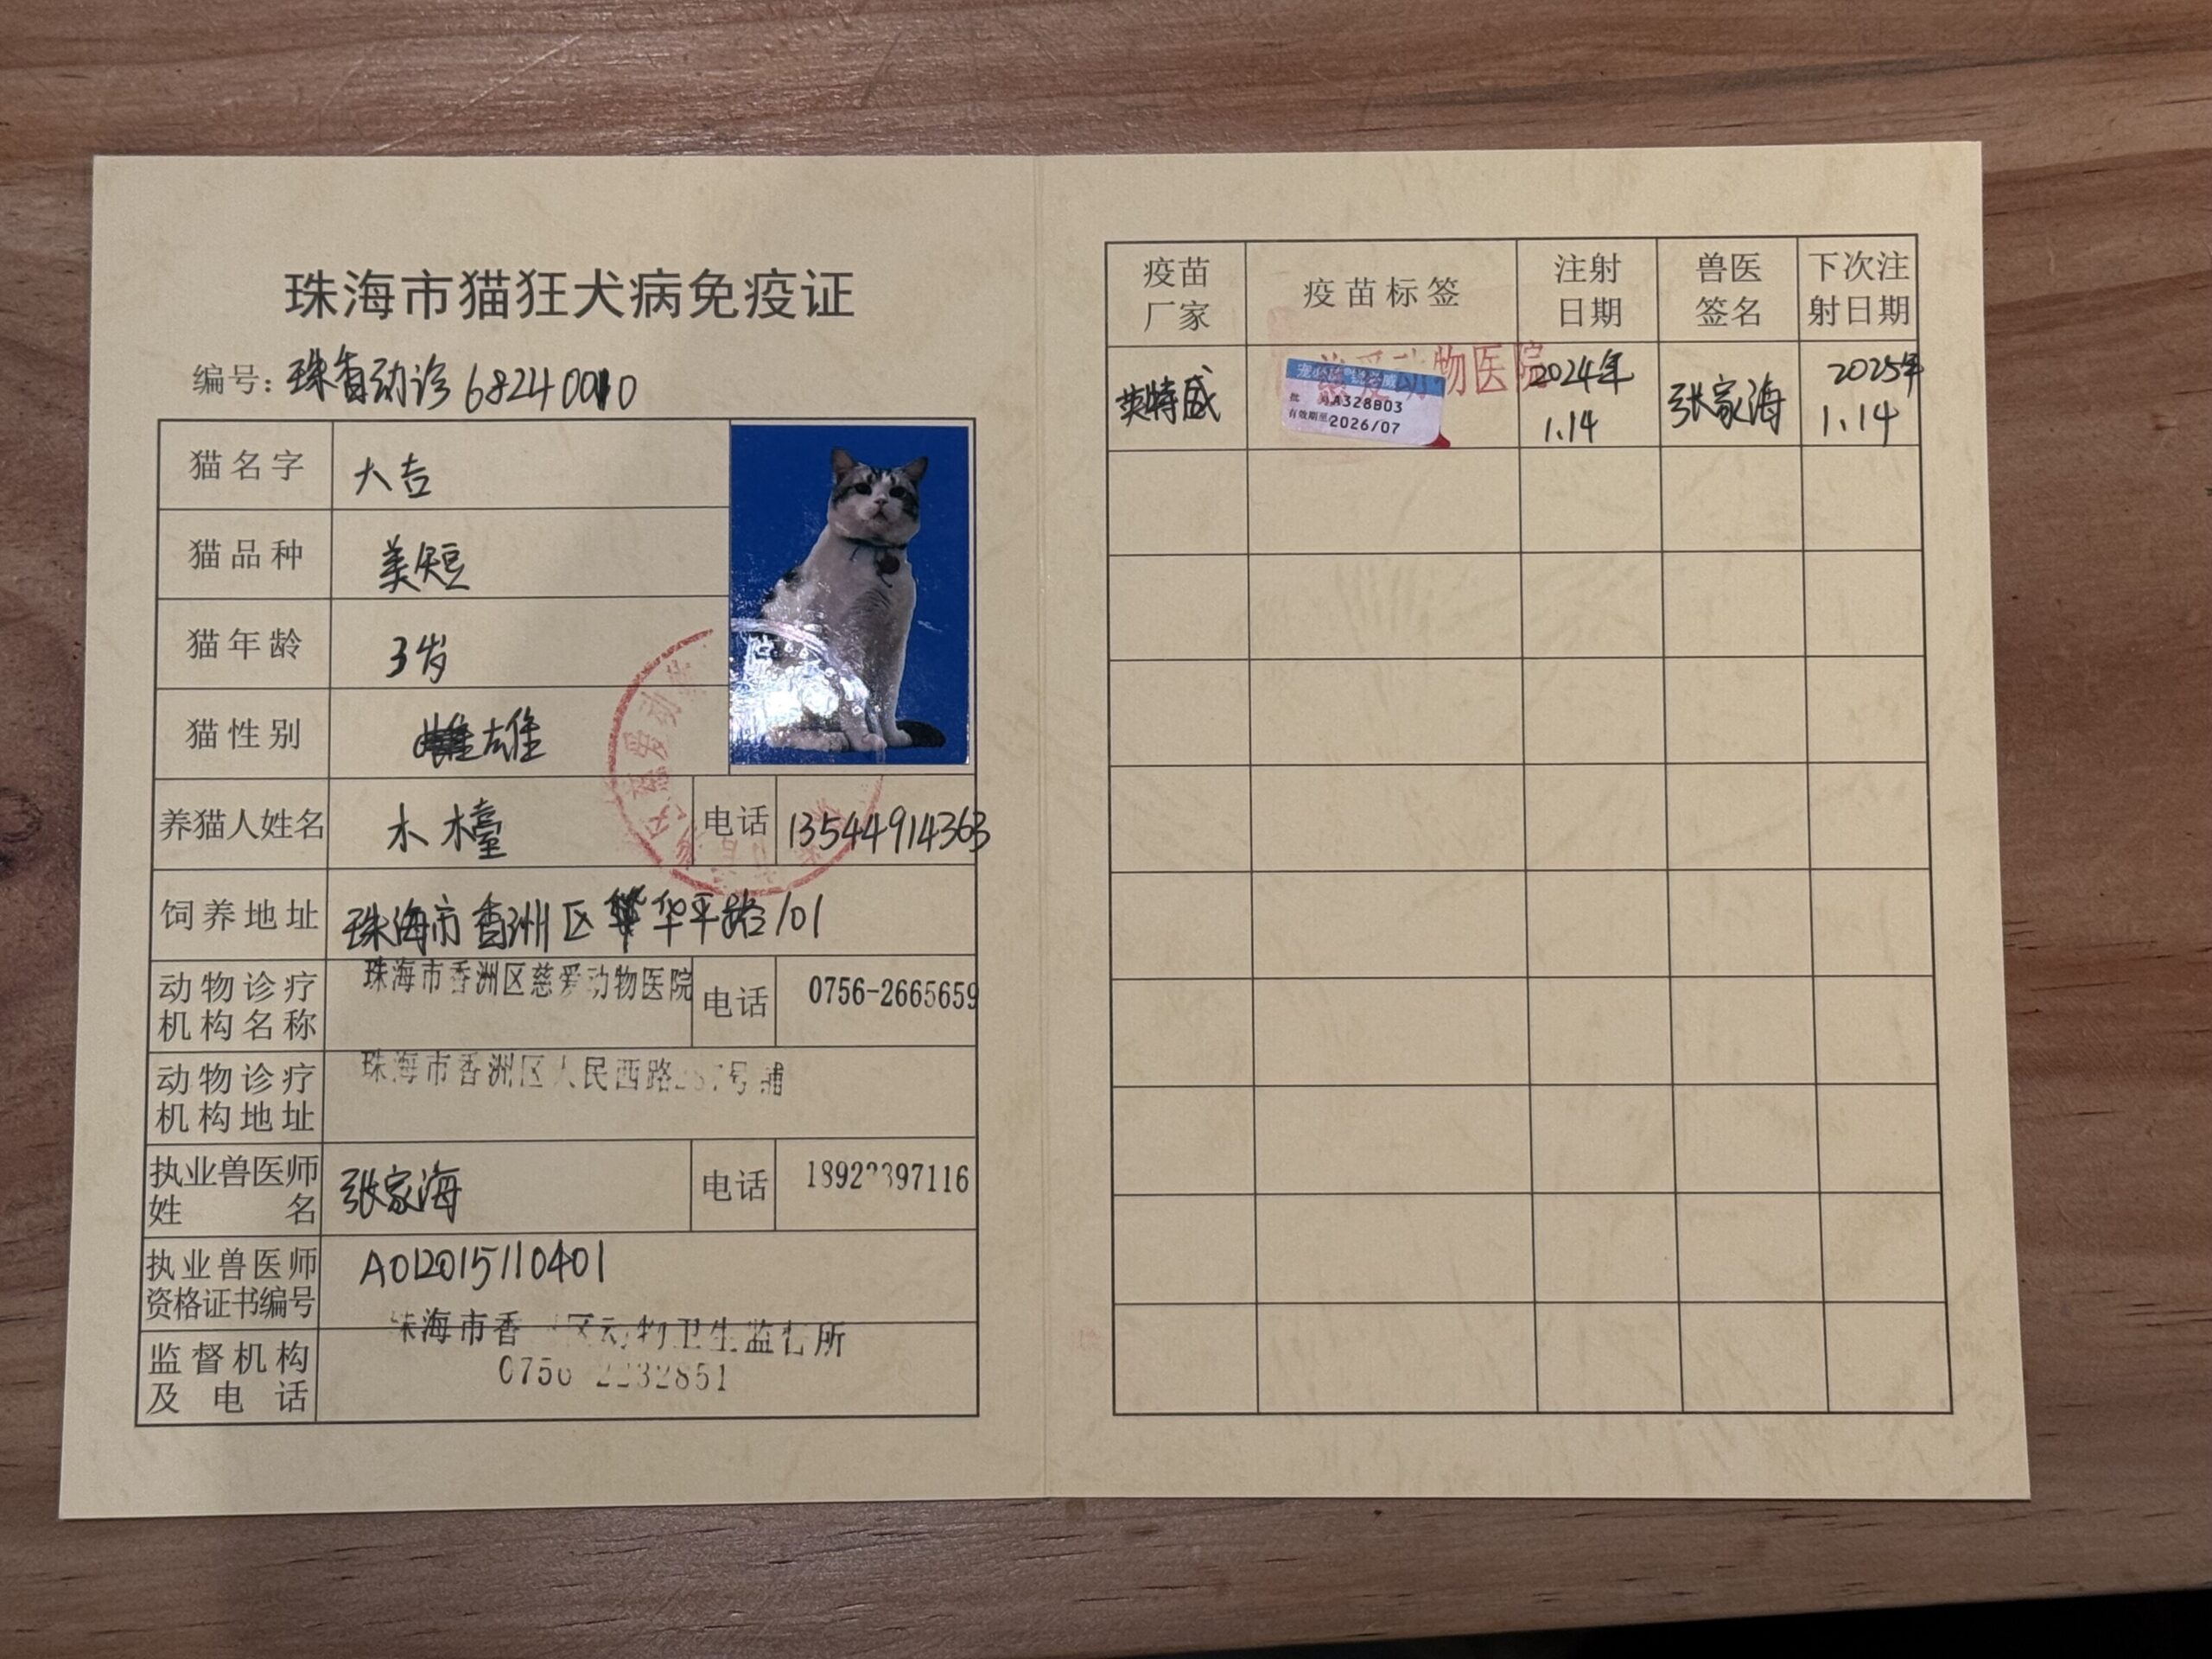 珠海市猫狂犬病免疫证
编号：珠香动诊68240010
猫名字 大吉
猫品种 美短
猫年龄 3岁
猫性别 雄
养猫人姓名 木 電话 13544914363
饲养地址 珠海市香洲区华平路101
动物诊疗机构名称 珠海市香洲区慈爱动物医院 电话 0756-2665659
动物诊疗机构地址 珠海市香洲区人民西路 号铺
执业兽医师姓名 张家海 电话 1892 397116
执业兽医师资格证书编号 A012015110401
监督机构及电话 珠海市香 区动物卫生监督所
0756 2232851
疫苗厂家 疫苗标签 注射日期 兽医签名 下次注射日期
英特威 慈爱动物医院 2024年 张家海 2025年
1.14 1.14
批 A328B03
有效期至2026/07